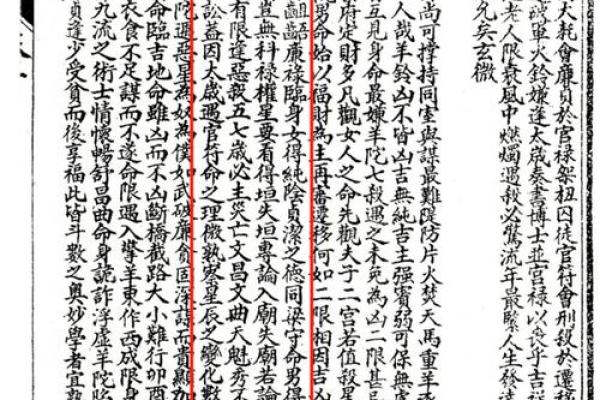 大耗會廉貞於官祿架杻囚徒官符會刑殺於遷移
軍火鈴嫌逢太歲奏書博士並宮祿以喪乎吉祥
老人限衰風中燃燭遇殺必驚流年最緊人生發達
允矣玄微
尚可撐持同室與謀最難隄防片火焚天馬重羊
人哉羊鈴凶不皆凶吉無純吉主强賓弱可保無虞
互見身命最嫌羊陀七殺遇之未免為凶二限甚忌
府定財多凡觀女人之命先觀夫子二宮若值殺星
男命始以福財為主再審遷移何如二限相因吉凶
齟齬廉祿臨身女得純陰貞潔之德同梁守命男得
豈無科祿權星要看得垣失垣專論入廟失廟若論
有限逢惡殺五七歲必主災亡文昌文曲天魁秀不
訟益因太歲遇官符命之理微熟察星辰之變化數
陀遞惡星為奴為僕如武破廉貪固深謀而貴顯加
命臨吉地命雖凶而不凶斷橋截路大小難行卯酉
衣食不足謀而不遂命限遇入擎羊東作西成限身
九流之術士情懷暢舒昌曲命身詭詐浮虛羊陀陷
貪逢少受貧而後享福此皆斗數之奧妙學者宜熟